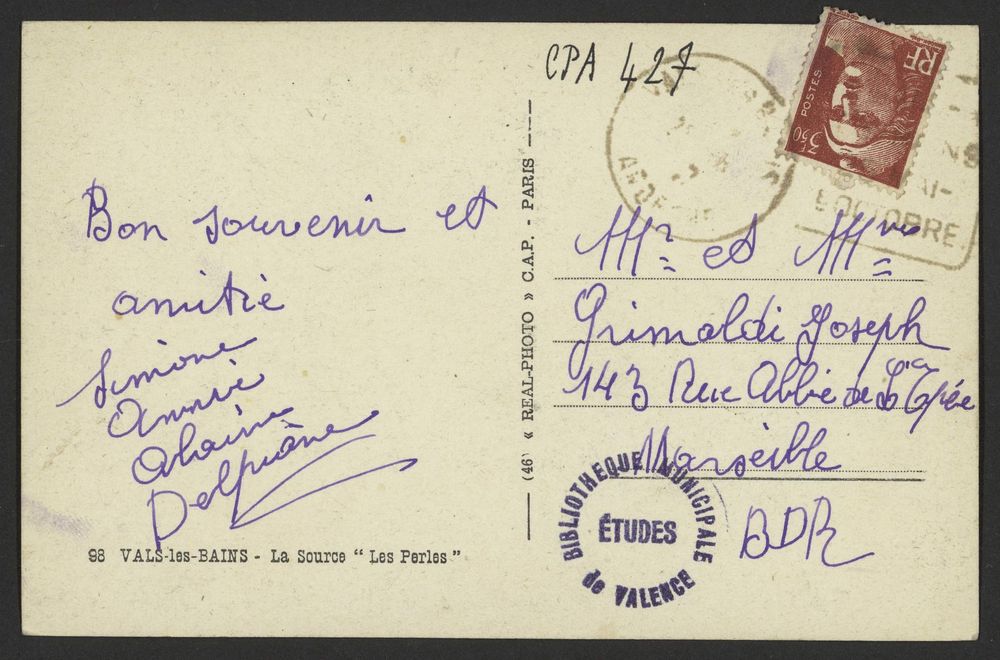 CPA 427
RF
POSTES
3F50
ARDECHE
OCTOBRE
Bon souvenir et
amitié
Simone
Annie
Alain
Delpiane
Mr et Mme
Grimaldi Joseph
143 Rue Abbé de L'Epée
Marseille
BDR
98 VALS-les-BAINS - La Source " Les Perles "
(46) « REAL-PHOTO » C.A.P. - PARIS
BIBLIOTHEQUE MUNICIPALE
ÉTUDES
de VALENCE